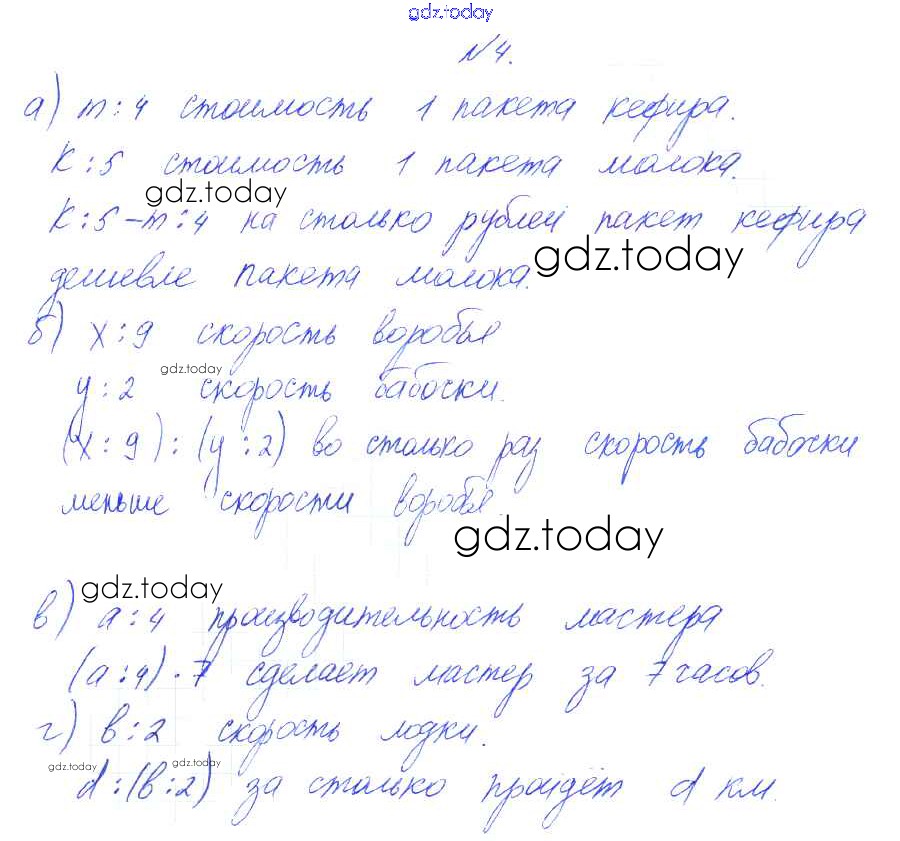 gdz.today
№4.
а) m:4 стоимость 1 пакета кефира.
к:5 стоимость 1 пакета молока.
gdz.today
к:5-m:4 на столько рублей пакет кефира
gdz.today
дешевле пакета молока.
б) x:9 скорость воробья
gdz.today
y:2 скорость бабочки.
(x:9):(y:2) во столько раз скорость бабочки
меньше скорости воробья.
gdz.today
gdz.today
в) a:4 производительность мастера
(a:4)·7 сделает мастер за 7 часов.
г) в:2 скорость лодки.
gdz.today
gdz.today
d:(в:2) за столько пройдёт d км.